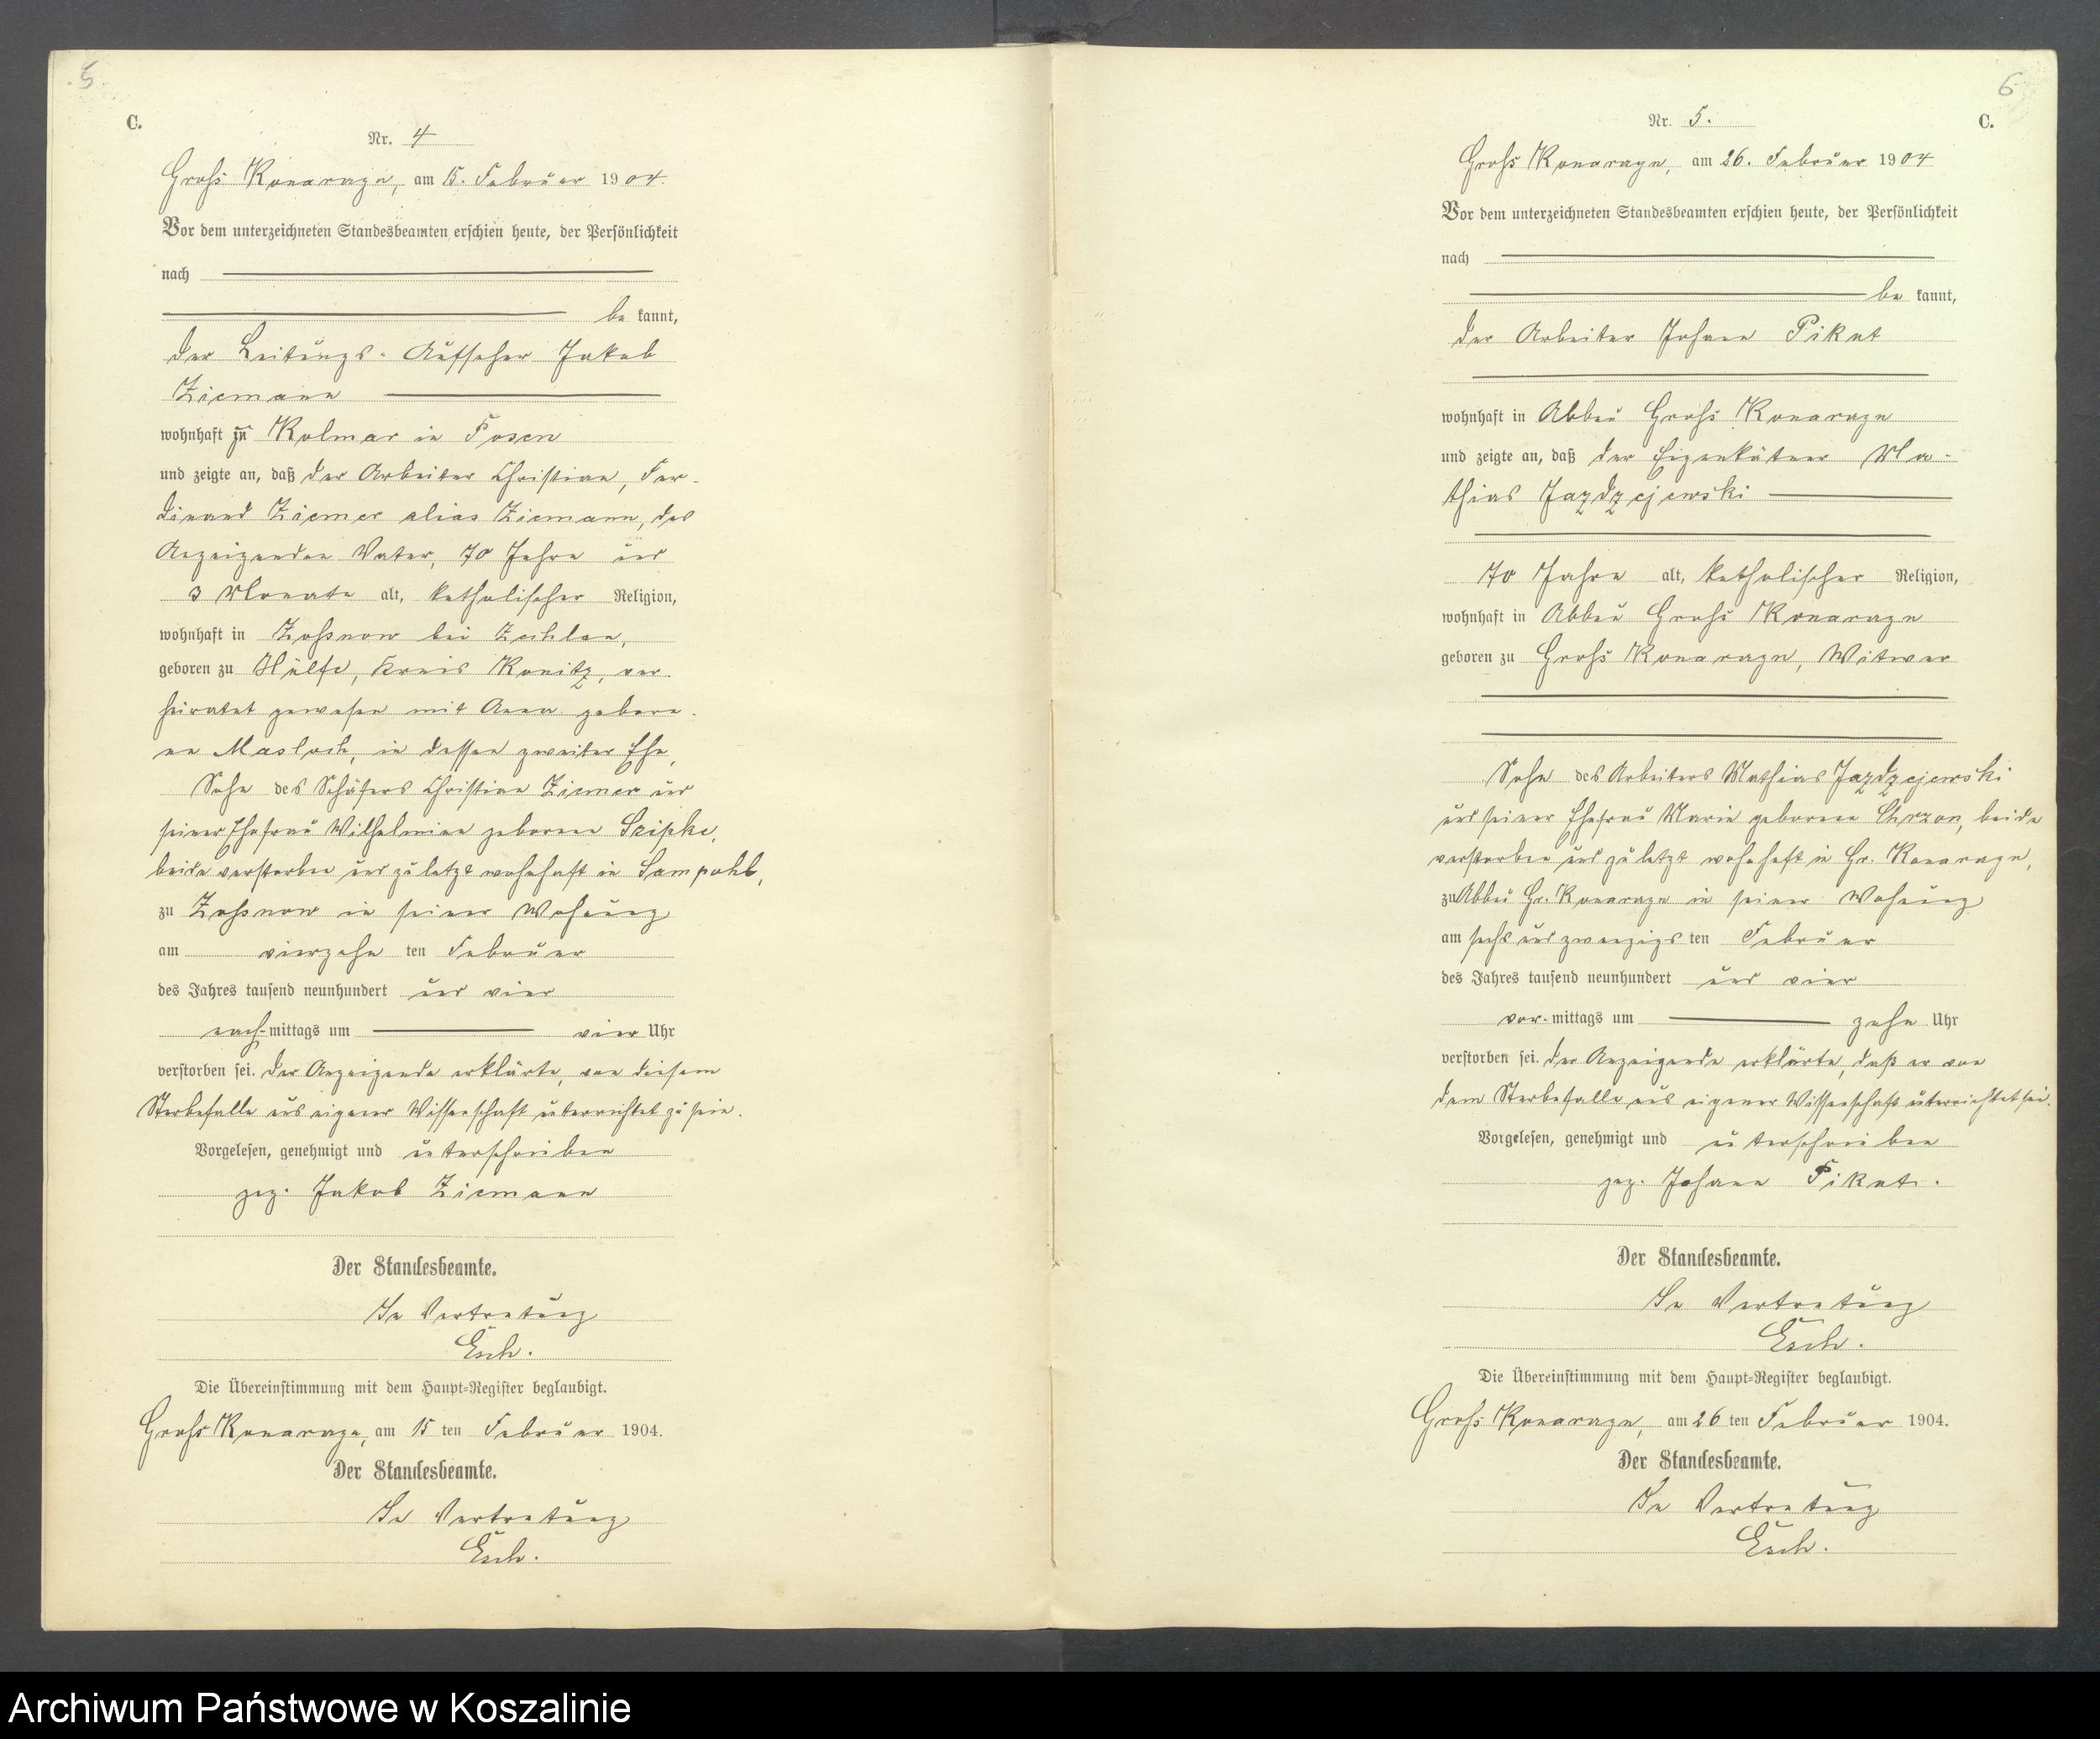 5
C.
Nr. 4
Groß Konarzyn, am 15. Februar 1904.
Vor dem unterzeichneten Standesbeamten erschien heute, der Persönlichkeit
nach
be kannt,
der Leitungs-Aufseher Jakob
Ziemann
wohnhaft zu Kolmar in Posen
und zeigte an, daß der Arbeiter Christian, Fer-
dinand Ziemer alias Ziemann, des
Anzeigenden Vater, 70 Jahre und
3 Monate alt, katholischer Religion,
wohnhaft in Zoßnow bei Zechlau,
geboren zu Hülfe, Kreis Konitz, ver-
heiratet gewesen mit Anna gebore-
ne Masloch, in dessen zweiter Ehe,
Sohn des Schäfers Christian Ziemer und
seiner Ehefrau Wilhelmine geborene
beide verstorben und zuletzt wohnhaft in Sampohl,
zu Zoßnow in seiner Wohnung
am vierzehn ten Februar
des Jahres tausend neunhundert und vier
nach-mittags um vier Uhr
verstorben sei. Der Anzeigende erklärte, von diesem
Sterbefalle aus eigener Wissenschaft unterrichtet zu sein.
Vorgelesen, genehmigt und unterschrieben
gez. Jakob Ziemann
Der Standesbeamte.
In Vertretung
Esch.
Die Übereinstimmung mit dem Haupt-Register beglaubigt.
Groß Konarzyn, am 15 ten Februar 1904.
Der Standesbeamte.
In Vertretung
Esch.
6
C.
Nr. 5.
Groß Konarzyn, am 26. Februar 1904
Vor dem unterzeichneten Standesbeamten erschien heute, der Persönlichkeit
nach
be kannt,
der Arbeiter Johann Pikat
wohnhaft in Abbau Groß Konarzyn
und zeigte an, daß der Eigenkätner Ma-
thias Jazdzejewski
70 Jahre alt, katholischer Religion,
wohnhaft in Abbau Groß Konarzyn
geboren zu Groß Konarzyn, Witwer
Sohn des Arbeiters Mathias Jazdzejewski
und seiner Ehefrau Marie geborene Chrzon, beide
verstorben und zuletzt wohnhaft in Gr. Konarzyn,
zu Abbau Gr. Konarzyn in seiner Wohnung
am sechs und zwanzigs ten Februar
des Jahres tausend neunhundert und vier
vor-mittags um zehn Uhr
verstorben sei. Der Anzeigende erklärte, daß er von
dem Sterbefalle aus eigener Wissenschaft unterrichtet sei.
Vorgelesen, genehmigt und unterschrieben
gez. Johann Pikat.
Der Standesbeamte.
In Vertretung
Esch.
Die Übereinstimmung mit dem Haupt-Register beglaubigt.
Groß Konarzyn, am 26 ten Februar 1904.
Der Standesbeamte.
In Vertretung
Esch.
Archiwum Państwowe w Koszalinie